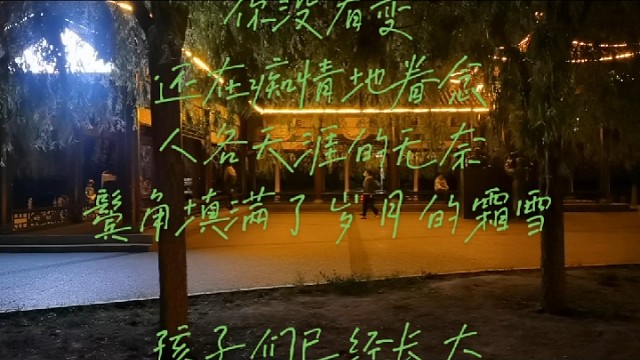 你没有变
还在痴情地眷念
人各天涯的无奈
鬓角填满了岁月的霜雪
孩子们已经长大